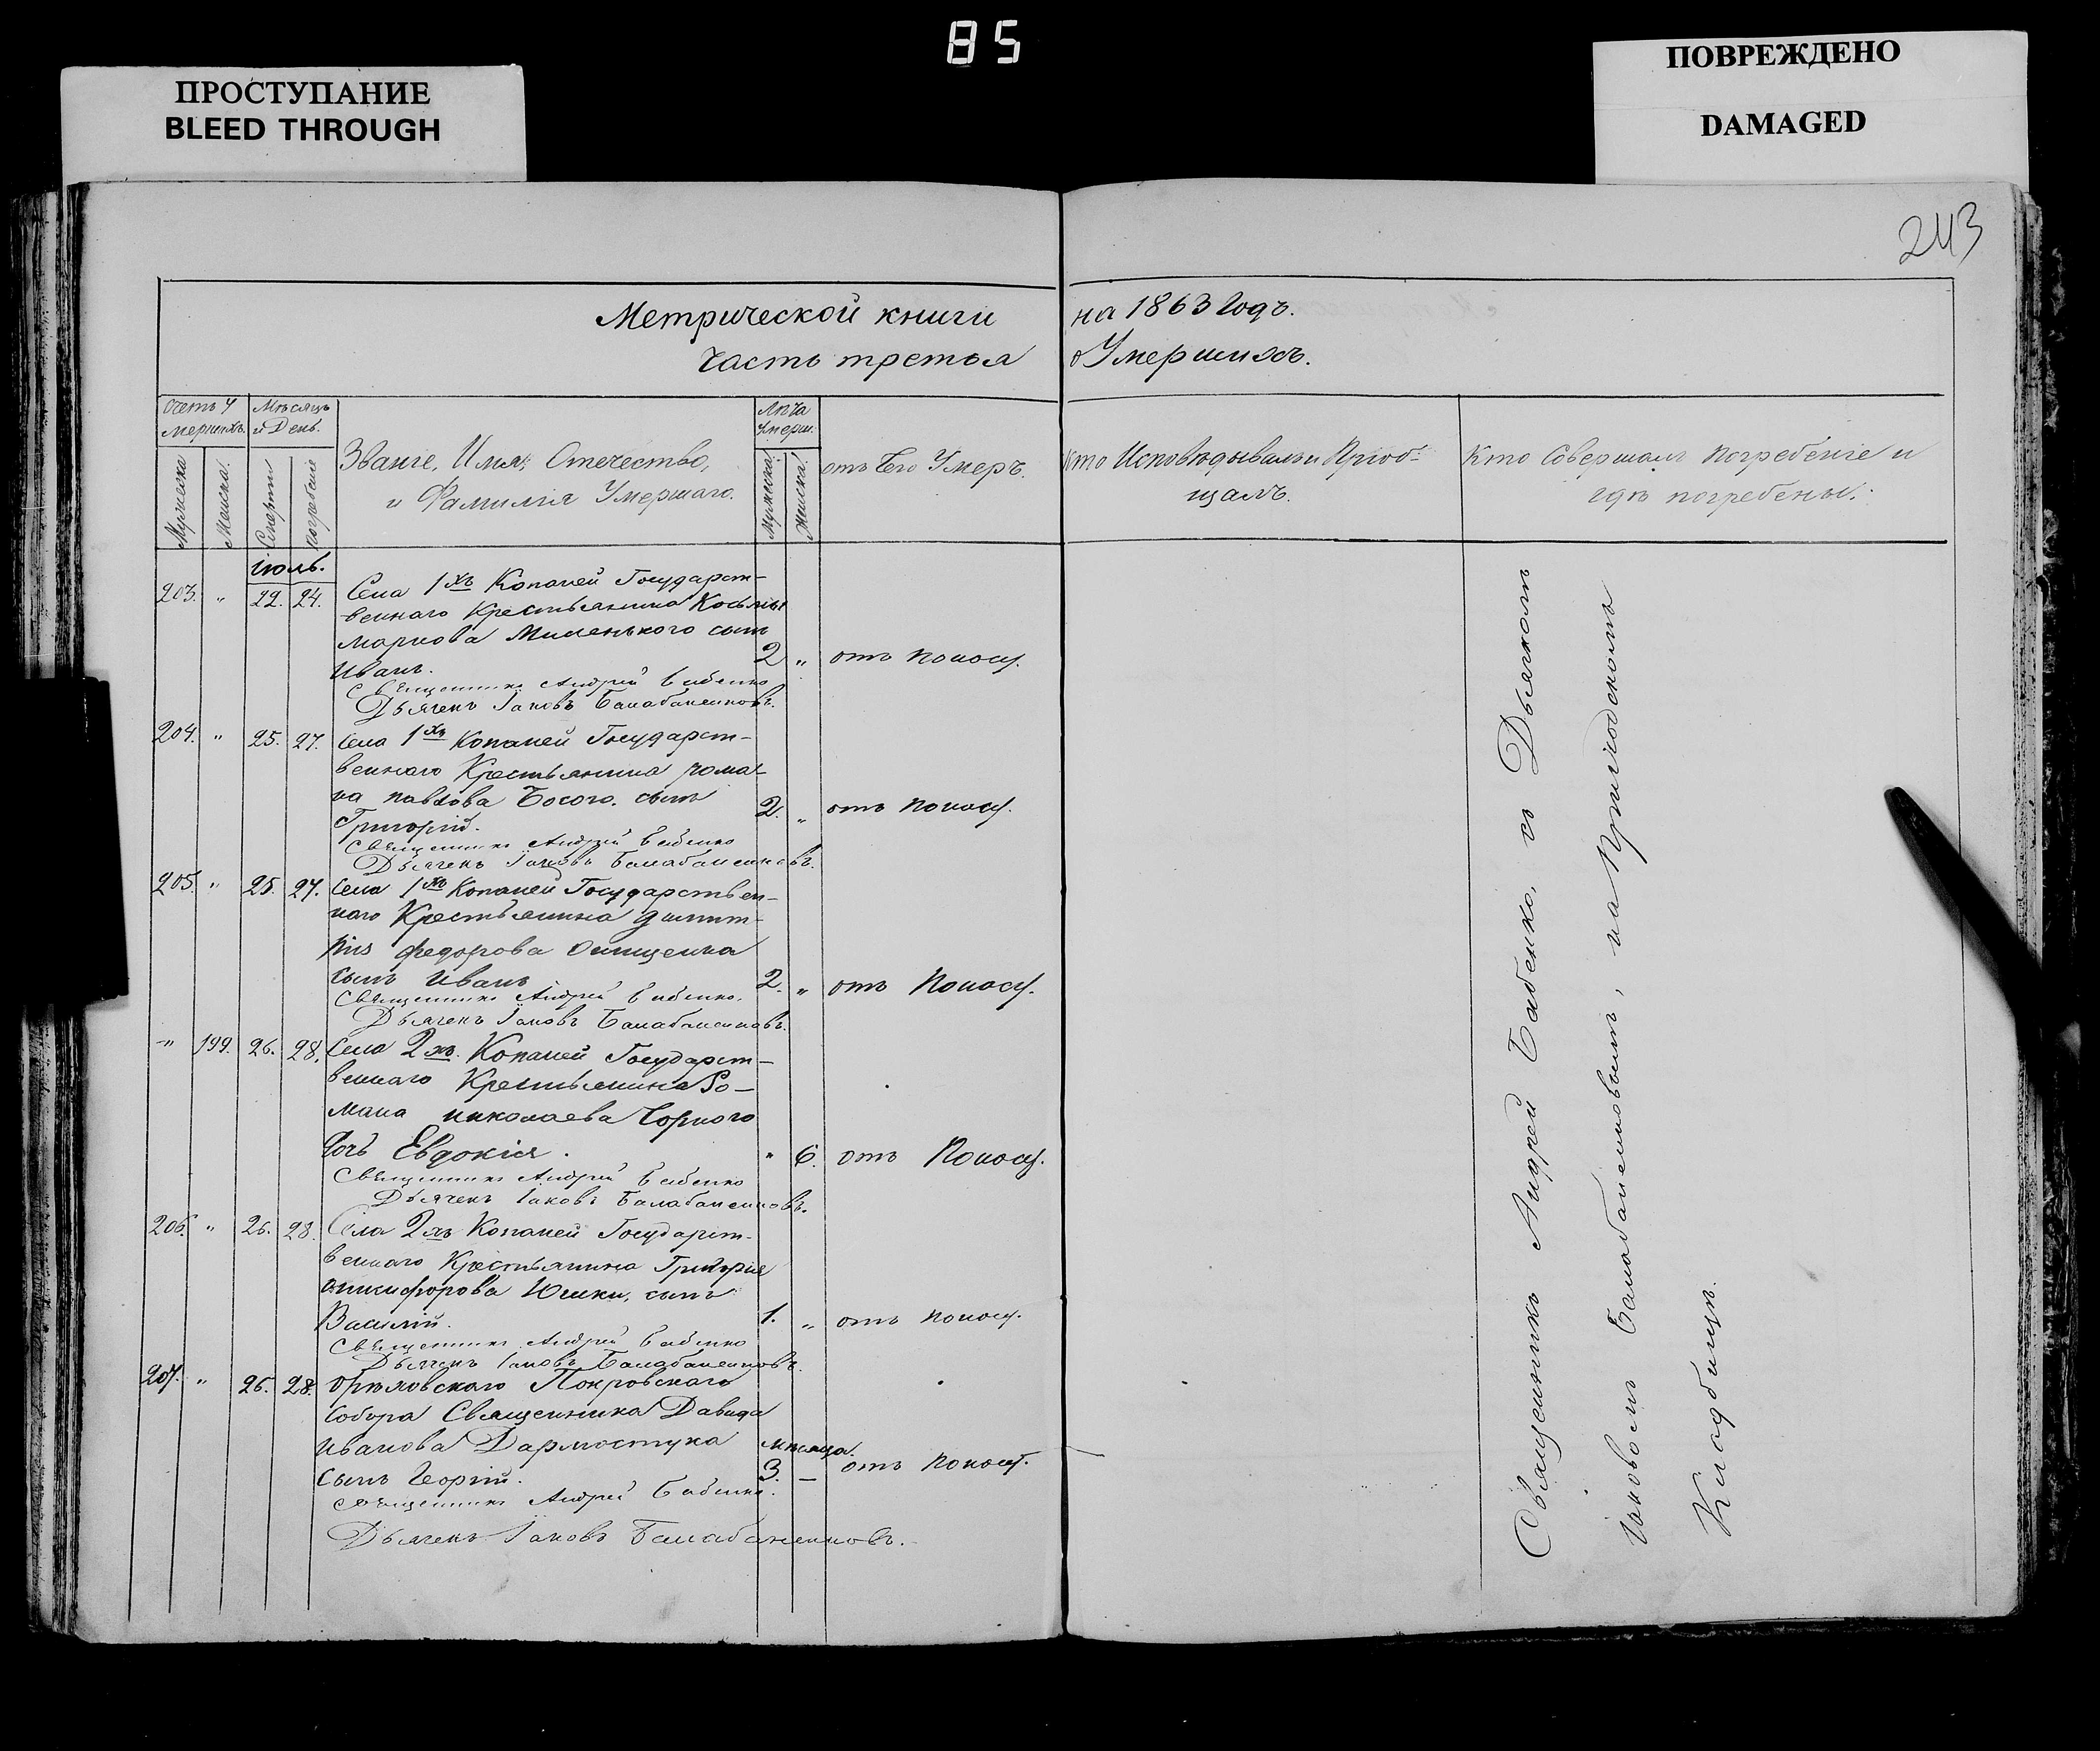 85
ПРОСТУПАНИЕ
BLEED THROUGH
ПОВРЕЖДЕНО
DAMAGED
243
Метрической книги на 1863 Годъ.
Часть третья о Умершихъ.
Счетъ У
мершихъ.
Мѣсяцъ
и День.
Мужеска
Женска.
Смерти
погребенія
Званіе, Имя, Отечество,
и Фамилія Умершаго.
Лѣта
Умерш.
Мужеска.
Женска.
отъ Чего Умеръ.
Кто Исповѣдывалъ и Пріоб-
щалъ.
Кто Совершалъ Погребеніе и
гдѣ погребены.
Июль.
203. " 22. 24. Села 1хъ Копаней Государст-
веннаго Крестьянина Косьмы
Маркова Миленького сынъ
Иванъ. 2 " отъ поносу.
Священникъ Андрей Бабенко
Дьячекъ Іаковъ Балабаненковъ.
204. " 25. 27. Села 1хъ Копаней Государст-
веннаго Крестьянина Рома-
на Павлова Босого. сынъ
Григорій. 2. " отъ поносу.
Священникъ Андрей Бабенко
Дьячекъ Іаковъ Балабаненковъ.
205. " 25. 27. Села 1хъ Копаней Государствен-
наго Крестьянина Димит-
рія Федорова Онищенка
сынъ Иванъ 2. " отъ Поносу.
Священникъ Андрей Бабенко.
Дьячекъ Іаковъ Балабаненковъ.
" 199. 26. 28. Села 2хъ Копаней Государст-
веннаго Крестьянина Ро-
мана Николаева Чорного
дочь Евдокія. " 6. отъ Поносу.
Священникъ Андрей Бабенко
Дьячекъ Іаковъ Балабаненковъ.
206. " 26. 28. Села 2хъ Копаней Государст-
веннаго Крестьянина Григорія
Аникифорова Юшки, сынъ
Василій. 1. " отъ поносу.
Священникъ Андрей Бабенко
Дьячекъ Іаковъ Балабаненковъ.
207. " 26. 28. Орѣховскаго Покровскаго
Собора Священника Давида
Иванова Дармостука мѣсяца.
сынъ Георгій. 3. — отъ поносу.
Священникъ Андрей Бабенко.
Дьячекъ Іаковъ Балабаненковъ.
Священникъ Андрей Бабенко, съ Дьячкомъ
Іаковомъ Балабаненковымъ, на Приходскомъ
Кладбищѣ.